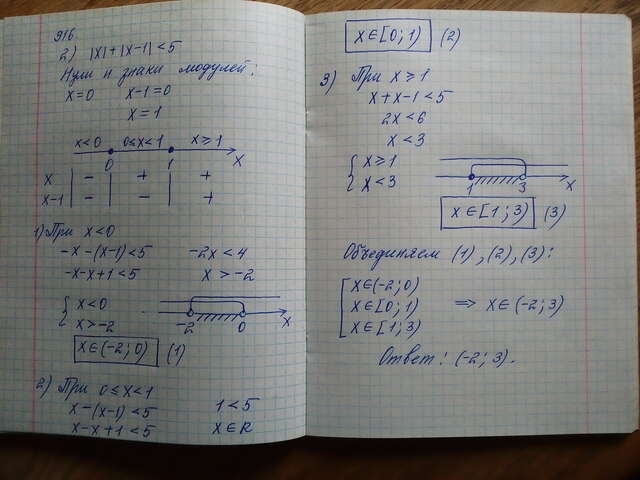 916.
2) |x|+|x-1|<5
Нули и знаки модулей:
x=0 x-1=0
x=1
x<0 0≤x<1 x≥1
0 1 x
x - + +
x-1 - - +
1) При x<0
-x-(x-1)<5 -2x<4
-x-x+1<5 x>-2
{ x<0
x>-2
-2 0 x
x∈(-2;0) (1)
2) При 0≤x<1
x-(x-1)<5 1<5
x-x+1<5 x∈R
x∈[0;1) (2)
3) При x≥1
x+x-1<5
2x<6
x<3
{ x≥1
x<3
1 3 x
x∈[1;3) (3)
Объединяем (1),(2),(3):
[ x∈(-2;0)
x∈[0;1) => x∈(-2;3)
x∈[1;3)
Ответ: (-2;3).